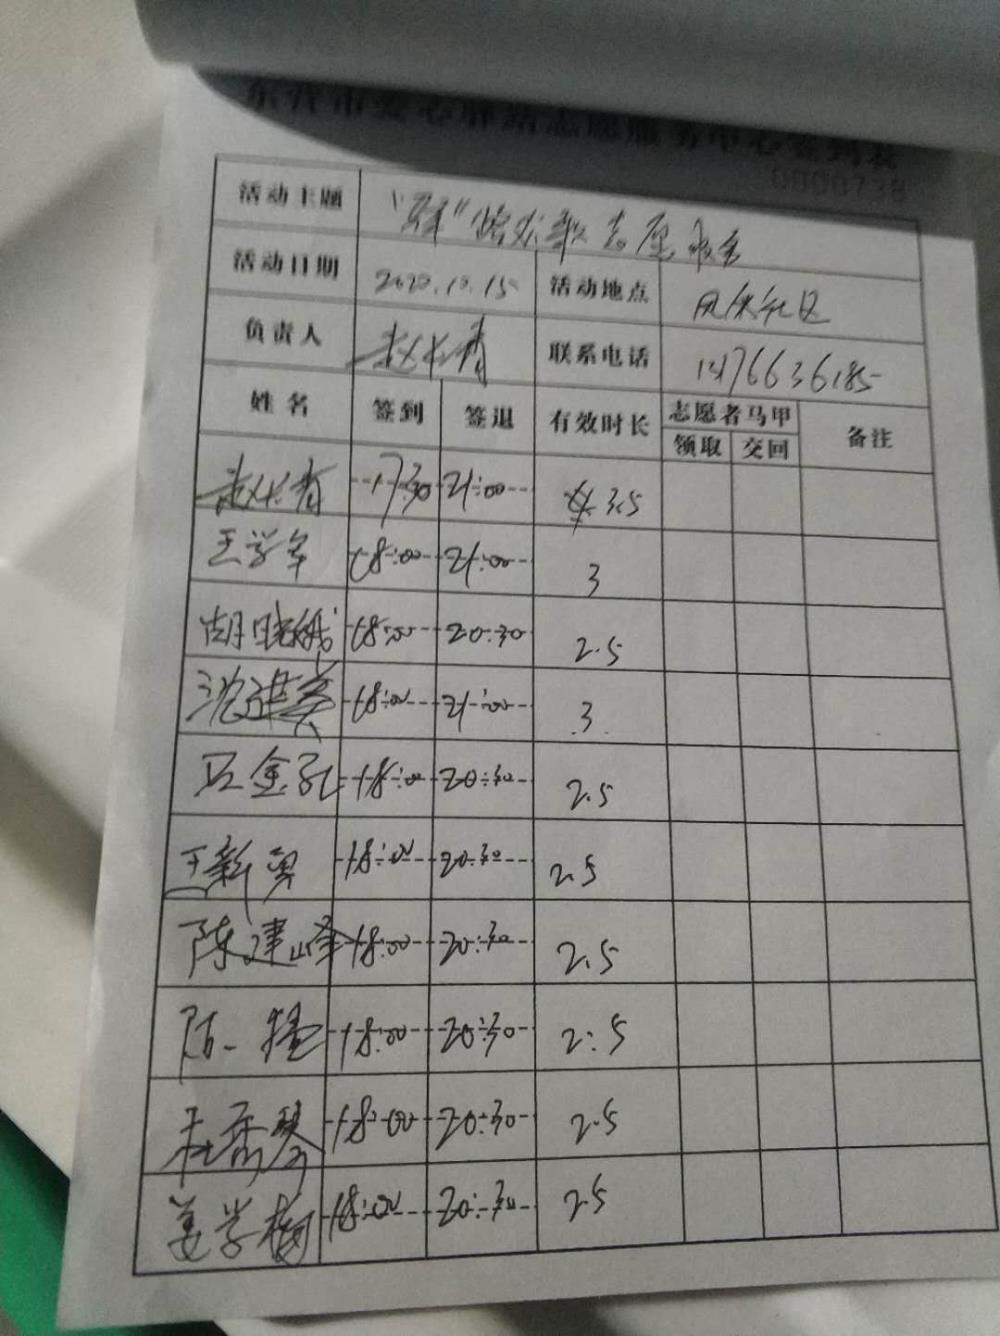 东营市爱心驿站志愿服务中心签到表
0000738
活动主题 志愿服务
活动日期 2020.10.15 活动地点 社区
负责人 赵长青 联系电话
姓名 签到 签退 有效时长 志愿者马甲 备注
领取 交回
赵长青 17:30 21:00 3.5
王学军 18:00 21:00 3
胡晓娥 18:00 20:30 2.5
沈进美 18:00 21:00 3
金 18:00 20:30 2.5
王新勇 18:00 20:30 2.5
陈建峰 18:00 20:30 2.5
陈 18:00 20:30 2.5
杜秀琴 18:00 20:30 2.5
姜学梅 18:00 20:30 2.5